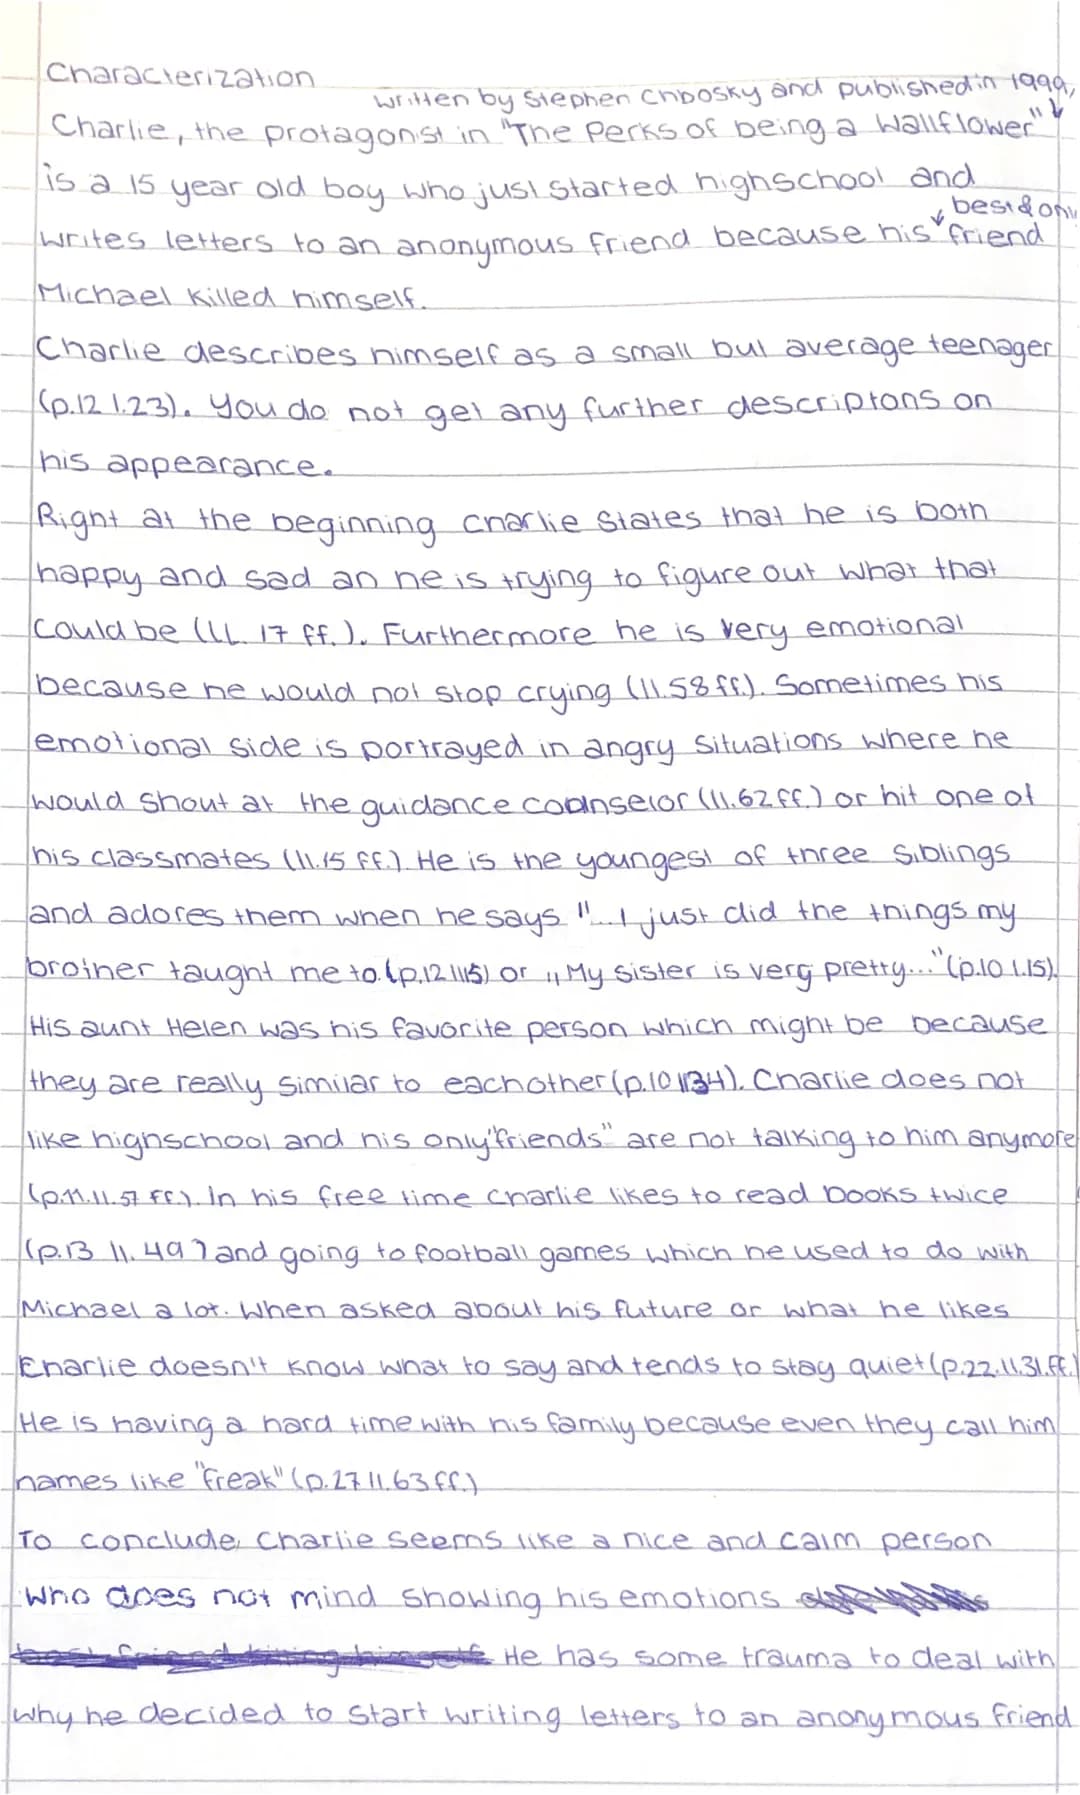 Characterization
written by Stephen Chbosky and published in 1999,
Charlie, the protagonist in "The Perks of being a Wallflower"
is a 15 year old boy who just started highschool and
best & only
writes letters to an anonymous friend because his friend
Michael killed himself.
Charlie describes himself as a small but average teenager
(p.12 l.23). You do not get any further descriptons on
his appearance.
Right at the beginning Charlie states that he is both
happy and sad an he is trying to figure out what that
could be (ll. 17 ff.). Furthermore he is very emotional
because he would not stop crying (ll.58 ff.). Sometimes his
emotional side is portrayed in angry situations where he
would shout at the guidance counselor (ll.62 ff.) or hit one of
his classmates (ll.15 ff.). He is the youngest of three siblings
and adores them when he says "...I just did the things my
brother taught me to.(p.12 l.15) or „My sister is very pretty..."(p.10 l.15).
His aunt Helen was his favorite person which might be because
they are really similar to eachother (p.10 l.34). Charlie does not
like highschool and his only "friends" are not talking to him anymore
(p.11.ll.57 ff.). In his free time Charlie likes to read books twice
(p.13 ll.49) and going to football games which he used to do with
Michael a lot. When asked about his future or what he likes
Charlie doesn't know what to say and tends to stay quiet (p.22.ll.31.ff.)
He is having a hard time with his family because even they call him
names like "freak" (p.27 ll.63 ff.)
To conclude, Charlie seems like a nice and calm person
who does not mind showing his emotions
He has some trauma to deal with
why he decided to start writing letters to an anonymous friend